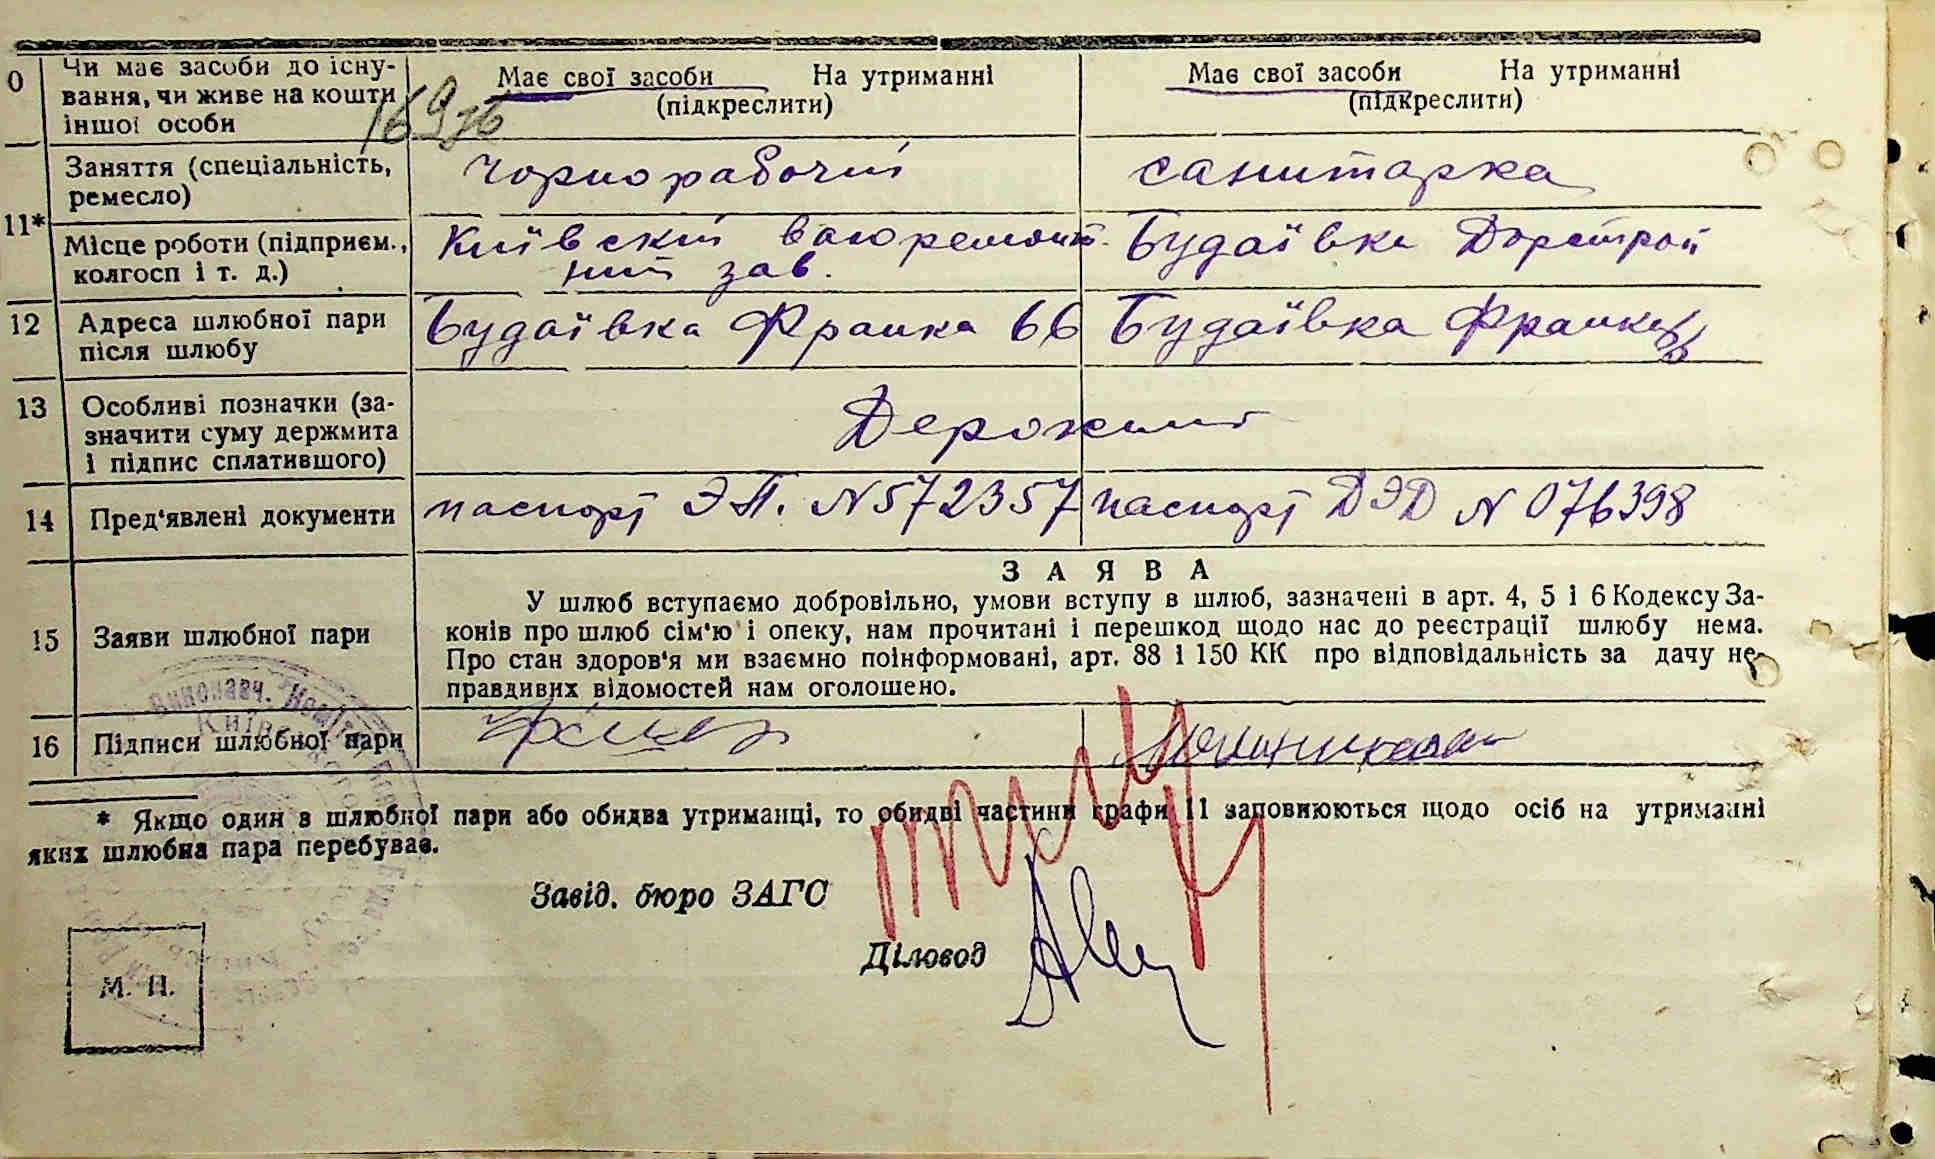 0 Чи має засоби до існу-
вання, чи живе на кошти
іншої особи
Має свої засоби На утриманні
(підкреслити)
Має свої засоби На утриманні
(підкреслити)
11*
Заняття (спеціальність,
ремесло)
чорнорабочий
санитарка
Місце роботи (підприєм.,
колгосп і т. д.)
Київский вагоремонт-
ний зав.
Будаївка Дорстрой
12 Адреса шлюбної пари
після шлюбу
Будаївка Франка 66
Будаївка Франка 66
13 Особливі позначки (за-
значити суму держмита
і підпис сплатившого)
14 Пред'явлені документи
паспорт ЭП. N 572357
паспорт ДЭД N 076398
15 Заяви шлюбної пари
ЗАЯВА
У шлюб вступаємо добровільно, умови вступу в шлюб, зазначені в арт. 4, 5 і 6 Кодексу За-
конів про шлюб сім'ю і опеку, нам прочитані і перешкод щодо нас до реєстрації шлюбу нема.
Про стан здоров'я ми взаємно поінформовані, арт. 88 і 150 КК про відповідальність за дачу не-
правдивих відомостей нам оголошено.
16 Підписи шлюбної пари
* Якщо один з шлюбної пари або обидва утриманці, то обидві частини графи 11 заповнюються щодо осіб на утриманні
яких шлюбна пара перебуває.
Завід. бюро ЗАГС
Діловод
М. П.